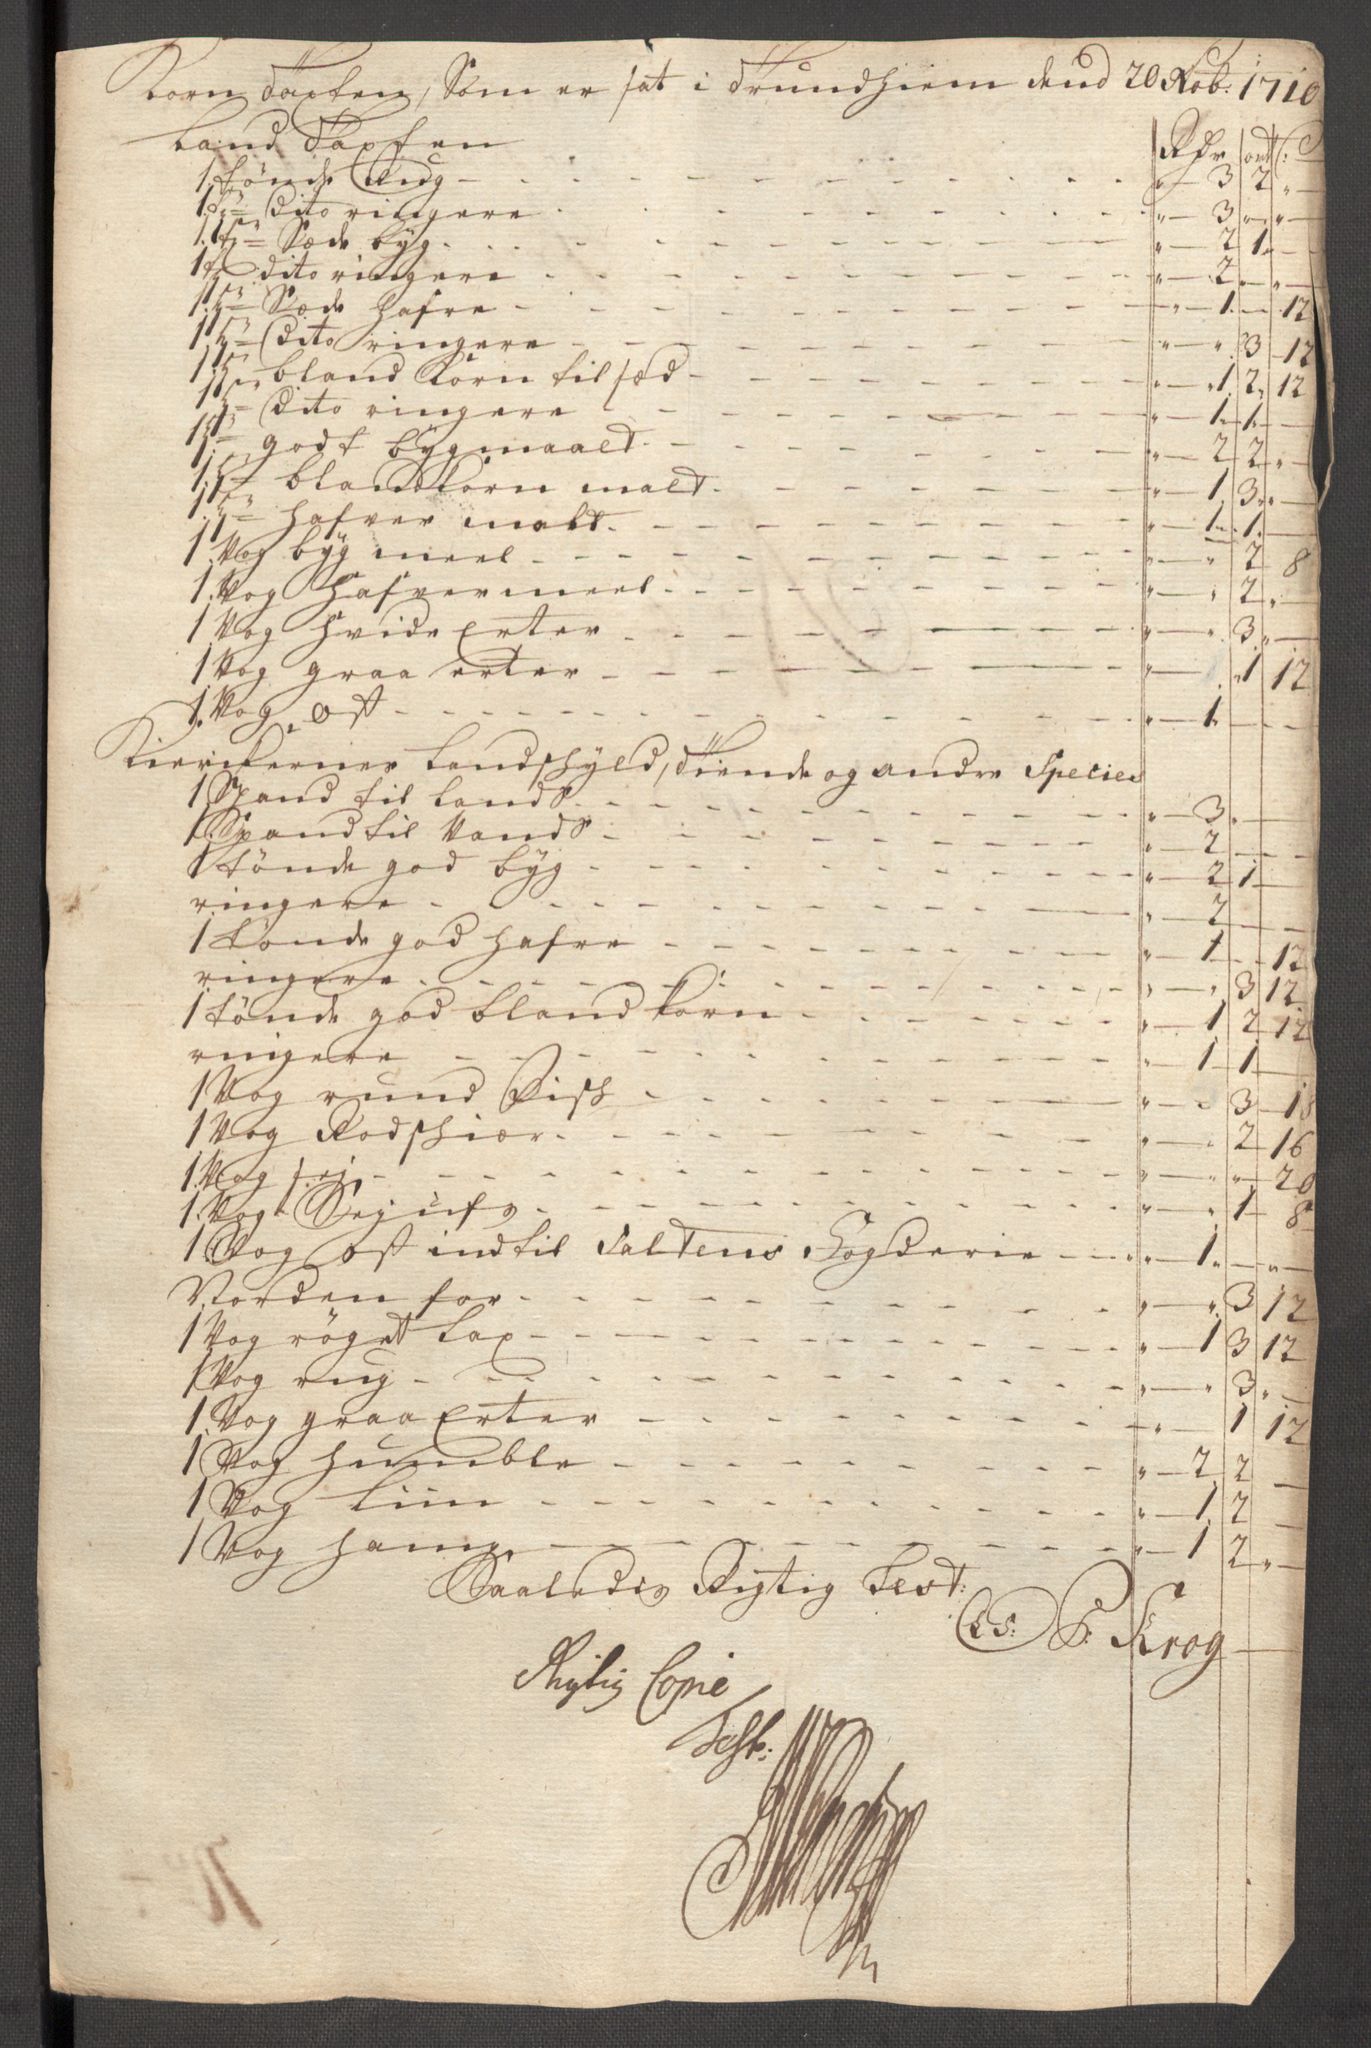 Korn Taxten, Som er sat i Trundhiem dend 20 Nob: 1710
Land Taxten Rdr ort s:
1 tønde Rug - - - " 3 2 "
1 t: Dito ringere - - - " 3 " "
1 t: Sæde byg - - - " 2 1
1 t: dito ringere - - - " 2 " "
1 t: Sæde hafre - - - " 1 - 12
1 t: Dito ringere - - - " " 3 12
1 t: bland Korn til sæd - - - " 1 2 12
1 t: Dito ringere - - - " 1 1
1 t: godt bygmaalt - - - " 2 2 "
1 t: blandkorn malt - - - " 1 3 "
1 t: hafver malt - - - " 1 1
1 Vog byg meel - - - " " 2 8
1 Vog hafvermeel - - - " " 2 "
1 Vog hvide Erter - - - " " 3 "
1 Vog graa erter - - - " 1 12
1 Vog ost - - - " 1
Kierckernes Landschyld, Tiende og andre Species
1 Spand til Lands - - - " 3 "
1 Spand til Vands - - - " 2
1 tønde god byg - - - " 2 1
ringere - - - " 2
1 tønde god hafre - - - " 1 - 12
ringere - - - " " 3 12
1 tønde god bland korn - - - " 1 2 12
ringere - - - " 1 1
1 Vog rund Fisch - - - " 3 18
1 Vog Rodschiær - - - " " 2 16
1 Vog sej - - - " " " 20
1 Vog Sejufs - - - " " 1 8
1 Vog ost indtil Saltens Fogderie - - - " 1 " "
Norden for - - - " " 3 12
1 Vog røget Lax - - - " 1 3 12
1 Vog rug - - - " " 3 "
1 Vog graa Erter - - - " 1 12
1 Vog humble - - - " 2 2
1 Vog Liin - - - " 1 2
1 Vog hamp - - - " 1 2 "
Saaledis Rigtig Test:
(LS:) P: Krog
Rigtig Copie
Test: